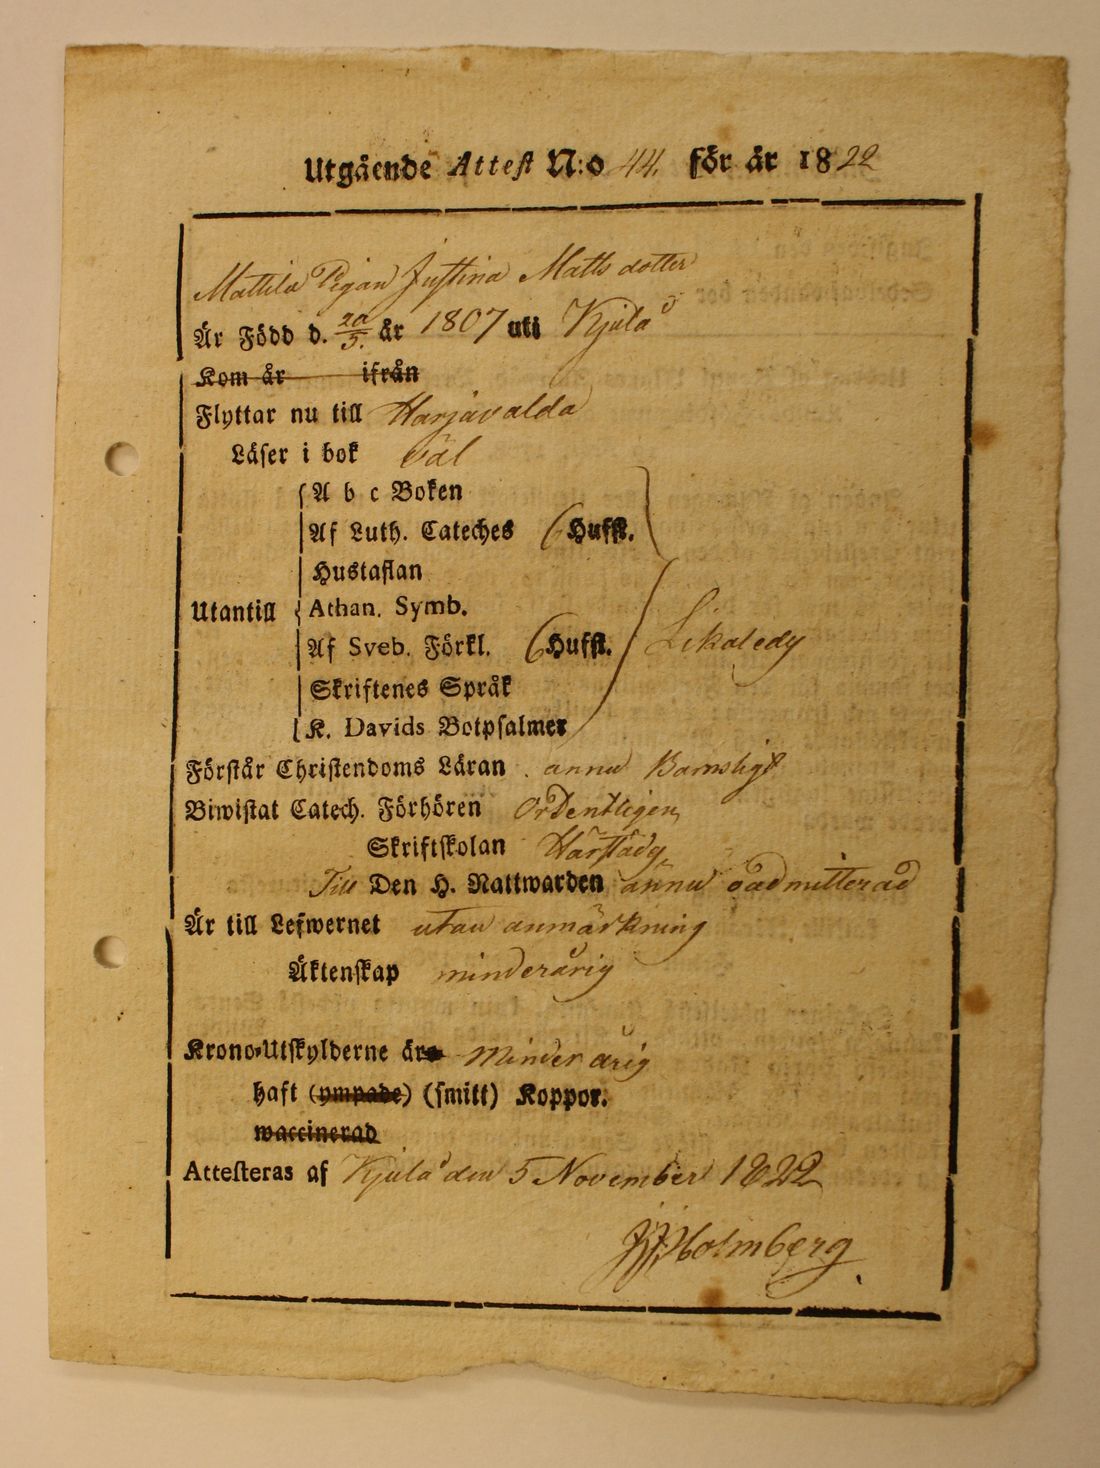 Utgående Attest N:o 44. för år 1822
Mattila Pigan Justina Matts dotter
Är Född d. 20/5. år 1807 uti Kjulå
Kom år ifrån
Flyttar nu till Harjavalda
Läser i bok väl
A b c Boken
Af Luth. Cateches (Hufst.
Hustaflan
Utantill Athan. Symb.
Af Sveb. Förkl. (Hufst. Likaledes
Skriftenes Språk
K. Davids Botpsalmer
Förstår Christendoms Läran . ännu Barnsligt
Biwistat Catech. Förhören Ordentligen
Skriftskolan
Till Den H. Nattwarden ännu oadmitterad
Är till Lefwernet utan anmärkning
Äktenskap minderårig
Krono-Utskylderne äro Minderårig
haft (ympade) (smitt) Koppor.
waccinerad
Attesteras af Kjulå den 5 November 1822
Holmberg